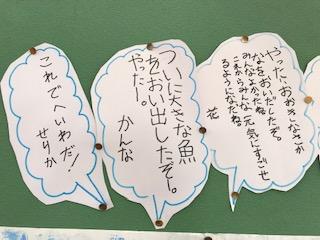 やった、おおきなさか
なをおいだしたぞ。
みんなよかったね。
これからみんな元気にすごせ
るようになだね。
花
ついに大きな魚
をおい出したぞー。
やったー。
かんな
これでへいわだ!
せりか